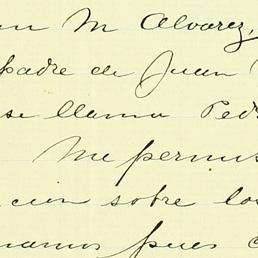 an M Alvarez,
padre de Juan
se llama Ped
Me permi
cion sobre los
namos pues c